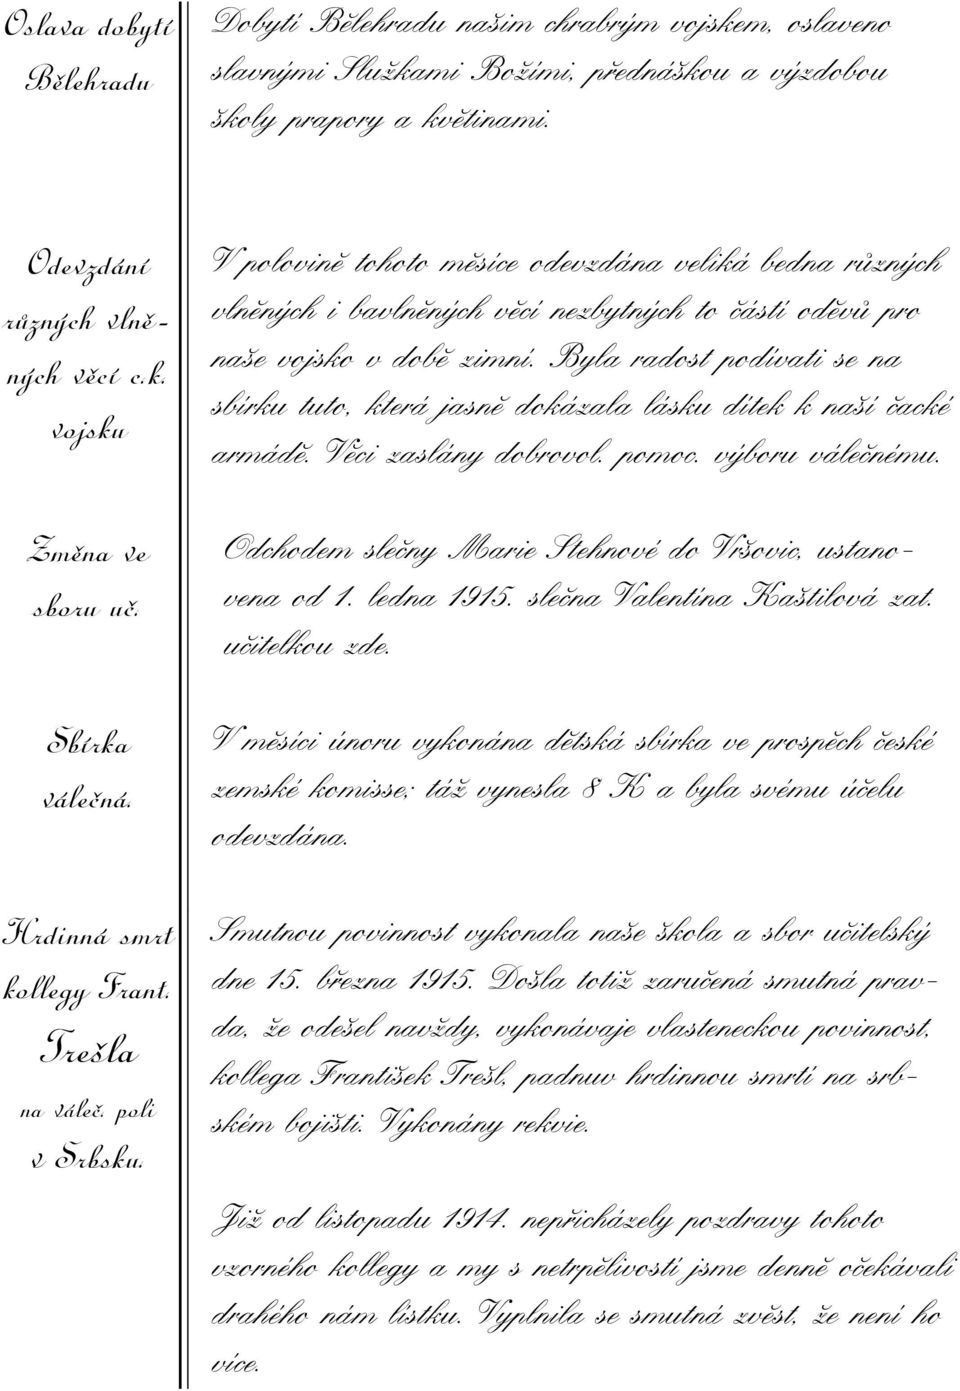 Oslava dobytí
Bělehradu
Dobytí Bělehradu našim chrabrým vojskem, oslaveno
slavnými Službami Božími, přednáškou a výzdobou
školy prapory a květinami.
Odevzdání
různých vlně-
ných věcí c.k.
vojsku
V polovině tohoto měsíce odevzdána veliká bedna různých
vlněných i bavlněných věcí nezbytných to částí oděvů pro
naše vojsko v době zimní. Byla radost podívati se na
sbírku tuto, která jasně dokázala lásku dítek k naší čacké
armádě. Věci zaslány dobrovol. pomoc. výboru válečnému.
Změna ve
sboru uč.
Odchodem slečny Marie Stehnové do Vršovic, ustano-
vena od 1. ledna 1915. slečna Valentína Kaštilová zat.
učitelkou zde.
Sbírka
válečná.
V měsíci únoru vykonána dětská sbírka ve prospěch české
zemské komisse; táž vynesla 8 K a byla svému účelu
odevzdána.
Hrdinná smrt
kollegy Frant.
Trešla
na váleč. poli
v Srbsku.
Smutnou povinnost vykonala naše škola a sbor učitelský
dne 15. března 1915. Došla totiž zaručená smutná prav-
da, že odešel navždy, vykonávaje vlasteneckou povinnost,
kollega František Trešl, padnuv hrdinnou smrtí na srb-
ském bojišti. Vykonány rekvie.
Již od listopadu 1914. nepřicházely pozdravy tohoto
vzorného kollegy a my s netrpělivostí jsme denně očekávali
drahého nám lístku. Vyplnila se smutná zvěst, že není ho
více.